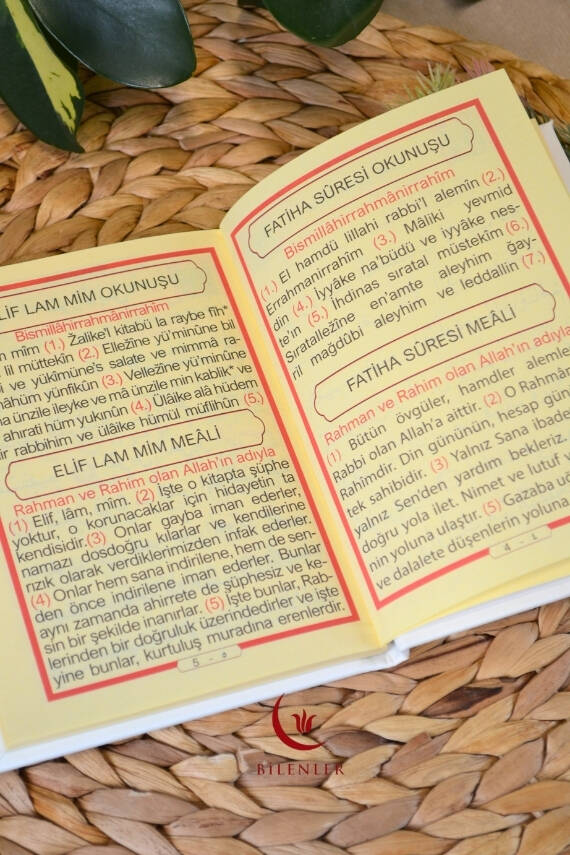 ELİF LAM MİM OKUNUŞU
Bismillâhirrahmânirrahîm
mîm (1.) Žalike'l kitabü la raybe fîh*
lil müttekîn (2.) Ellezîne yü'minûne bil
ve yükîmûne's salate ve mimmâ ra-
yünfikûn (3.) Vellezîne yü'minûne
ünzile ileyke ve mâ ünzile min kablik* ve
ahirati hüm yukınûn (4.) Ülâike alâ hüdem
rabbihim ve ülâike hümül müflihûn (5.)
ELİF LAM MİM MEÂLİ
Rahman ve Rahim olan Allah'ın adıyla
(1) Elif, lâm, mîm. (2) İşte o kitapta şüphe
yoktur, o korunacaklar için hidayetin ta
kendisidir.(3) Onlar gayba iman ederler,
namazı dosdoğru kılarlar ve kendilerine
rızık olarak verdiklerimizden infak ederler.
(4) Onlar hem sana indirilene, hem de sen-
den önce indirilene iman ederler. Bunlar
aynı zamanda ahirete de şüphesiz ve ke-
sin bir şekilde inanırlar. (5) İşte bunlar, Rab-
lerinden bir doğruluk üzerindedirler ve işte
yine bunlar, kurtuluş muradına erenlerdir.
5 - ٥
FATİHA SÛRESİ OKUNUŞU
Bismillâhirrahmânirrahîm
(1.) El hamdü lillahi rabbi'l alemîn (2.)
Errahmanirrahîm (3.) Mâliki yevmid
din (4.) İyyâke na'büdü ve iyyâke nes-
te'ın (5.) İhdinas sıratal müstekîm (6.)
Sıratallezîne en'amte aleyhim ğay-
ril mağdûbi aleyhim ve leddallin (7.)
FATİHA SÛRESİ MEÂLİ
Rahman ve Rahim olan Allah'ın adıyla
(1) Bütün övgüler, hamdler alemle
Rabbi olan Allah'a aittir. (2) O Rahmân
Rahîmdir. Din gününün, hesap gün
tek sahibidir. (3) Yalnız Sana ibade
yalnız Sen'den yardım bekleriz.
doğru yola ilet. Nimet ve lutuf v
nin yoluna ulaştır. (5) Gazaba uğ
ve dalalete düşenlerin yoluna
4 - ٤
BİLENLER